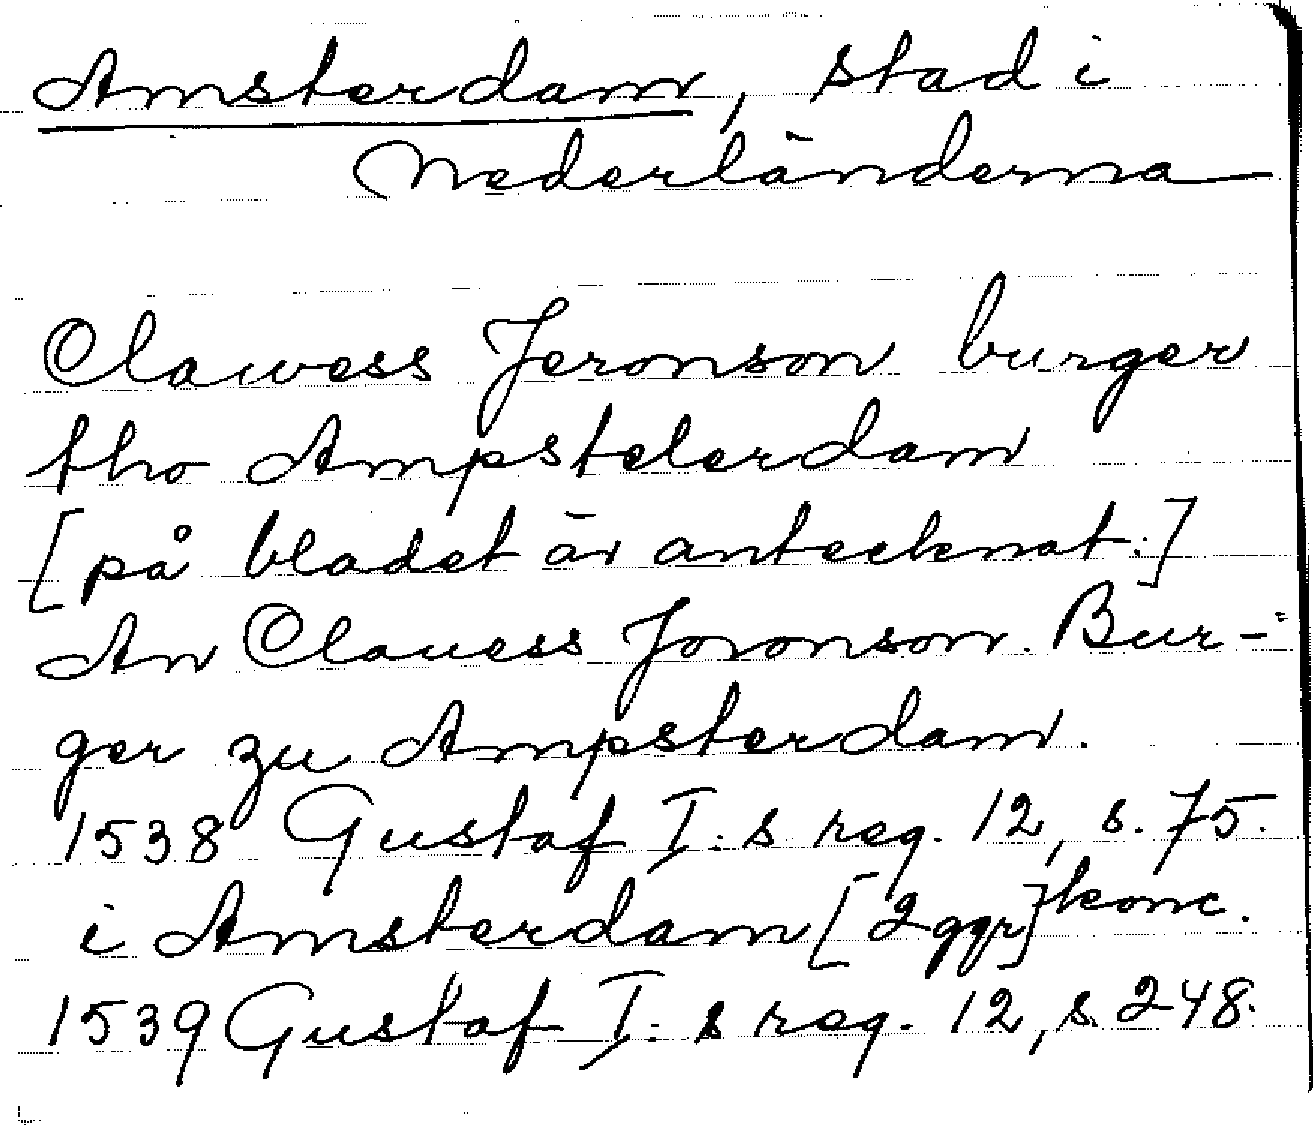 Amsterdam, stad i
Nederländerna
Clawess Jeronson burger
tho Ampstelerdam
[på bladet är antecknat:]
An Clauess Joronson. Bur-
ger zu Ampsterdam.
1538 Gustaf I:s reg. 12, s. 75.
i Amsterdam [2 ggr] konc.
1539 Gustaf I:s reg. 12, s. 248.